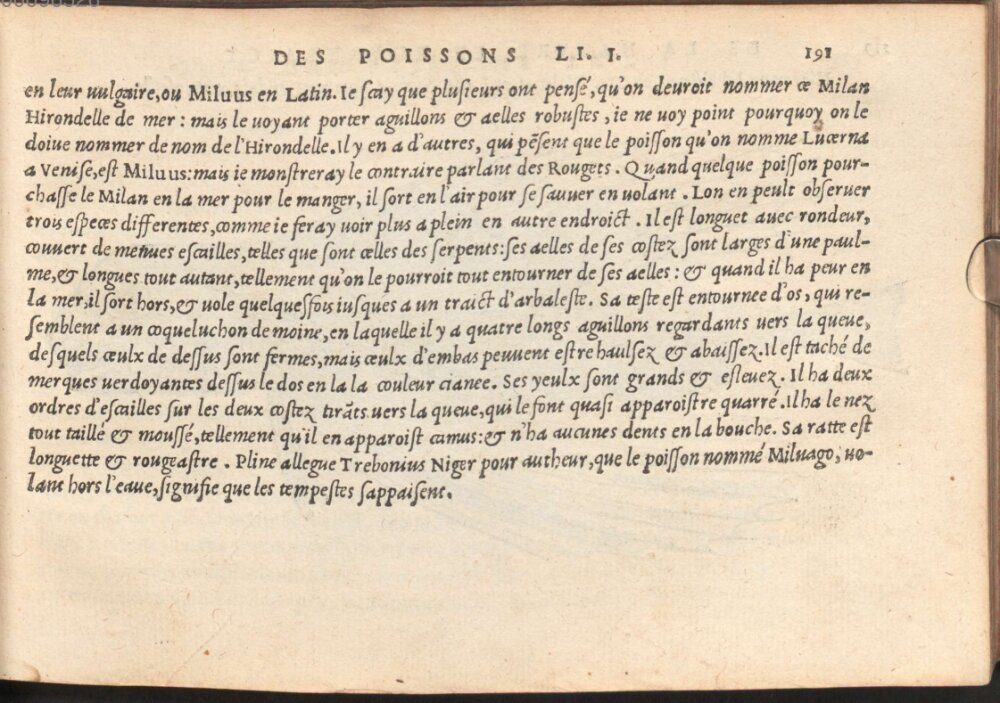 DES POISSONS LI. I. 191
en leur uulgaire, ou Miluus en Latin. Ie scay que plusieurs ont pensé, qu'on deuroit nommer ce Milan
Hirondelle de mer : mais le uoyant porter aguillons & aelles robustes, ie ne uoy point pourquoy on le
doiue nommer de nom de l'Hirondelle. Il y en a d'autres, qui pẽsent que le poisson qu'on nomme Lucerna
a Venise, est Miluus: mais ie monstreray le contraire parlant des Rougets. Quand quelque poisson pour-
chasse le Milan en la mer pour le manger, il sort en l'air pour se sauuer en uolant. Lon en peult obseruer
trois especes differentes, comme ie feray uoir plus a plein en autre endroict. Il est longuet auec rondeur,
couuert de menues escailles, telles que sont celles des serpents: ses aelles de ses costez sont larges d'une paul-
me, & longues tout autant, tellement qu'on le pourroit tout entourner de ses aelles : & quand il ha peur en
la mer, il sort hors, & uole quelquesfois iusques a un traict d'arbaleste. Sa teste est entournee d'os, qui re-
semblent a un coqueluchon de moine, en laquelle il y a quatre longs aguillons regardants uers la queue,
desquels ceulx de dessus sont fermes, mais ceulx d'embas peuuent estre haulsez & abaissez. Il est taché de
merques uerdoyantes dessus le dos en la la couleur cianee. Ses yeulx sont grands & esleuez. Il ha deux
ordres d'escailles sur les deux costez tirãts uers la queue, qui le font quasi apparoistre quarré. Il ha le nez
tout taillé & moussé, tellement qu'il en apparoist camus: & n'ha aucunes dents en la bouche. Sa ratte est
longuette & rougeastre. Pline allegue Trebonius Niger pour autheur, que le poisson nommé Miluago, uo-
lant hors l'eaue, signifie que les tempestes s'appaisent.